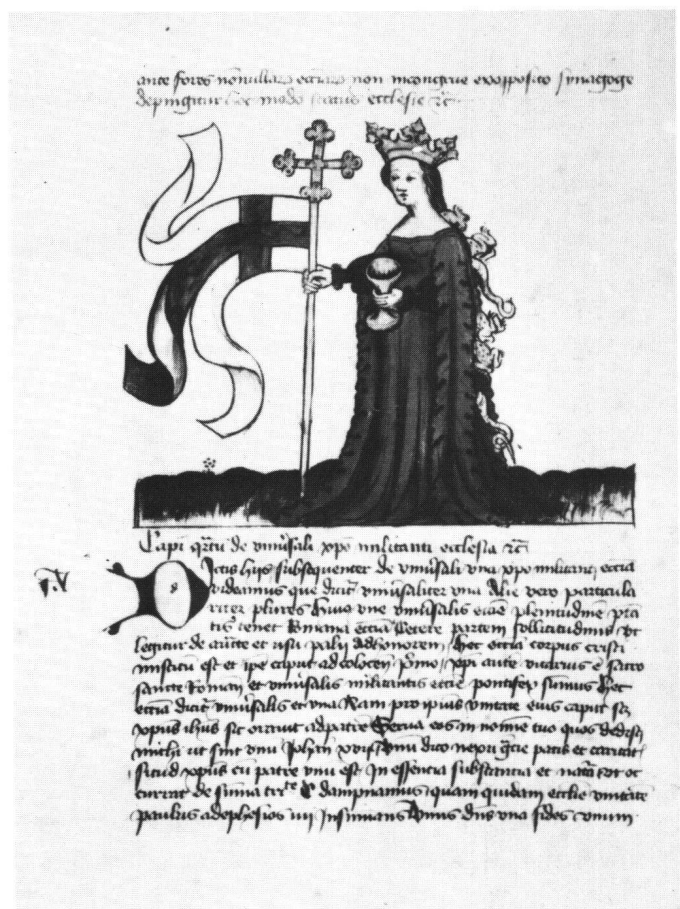 ante fores nonullar eccliar non incongrue ex opposito synagoge
depingitur modo status ecclesie rc
Capi qrtu de vniusali xpo militanti ecclesia rc
Ictis hijs subsequenter de vniusali vna xpo militanti eccia
videamus que dicit vniusaliter vna alie vero particula
riter plures huius vne vniusalis eccie plenitudine
tenet Romana eccia Cetere partem sollicitudinis vt
legitur de et usu palij ad honorem hec eccia corpus cristi
misticu est et ipe caput ad colocen pmo xpi aute vicarius e sacro
sancte Romane et vniusalis militantis eccie pontifex sumus hec
eccia dicit vniusalis et vna Nam pro ipius vnitate eius caput
xpus ihus sic orauit ad patre Serua eos in nomine tuo quos dedisti
michi ut sint vnu Johan vnu dico nexu patris et
sicud xpus cu patre vnu est In essentia substantia et natura
de suma dampnamus quam quidam ecclie vnitate
paulus ad ephesios iiij Insinuans vnus dns vna fides vnum